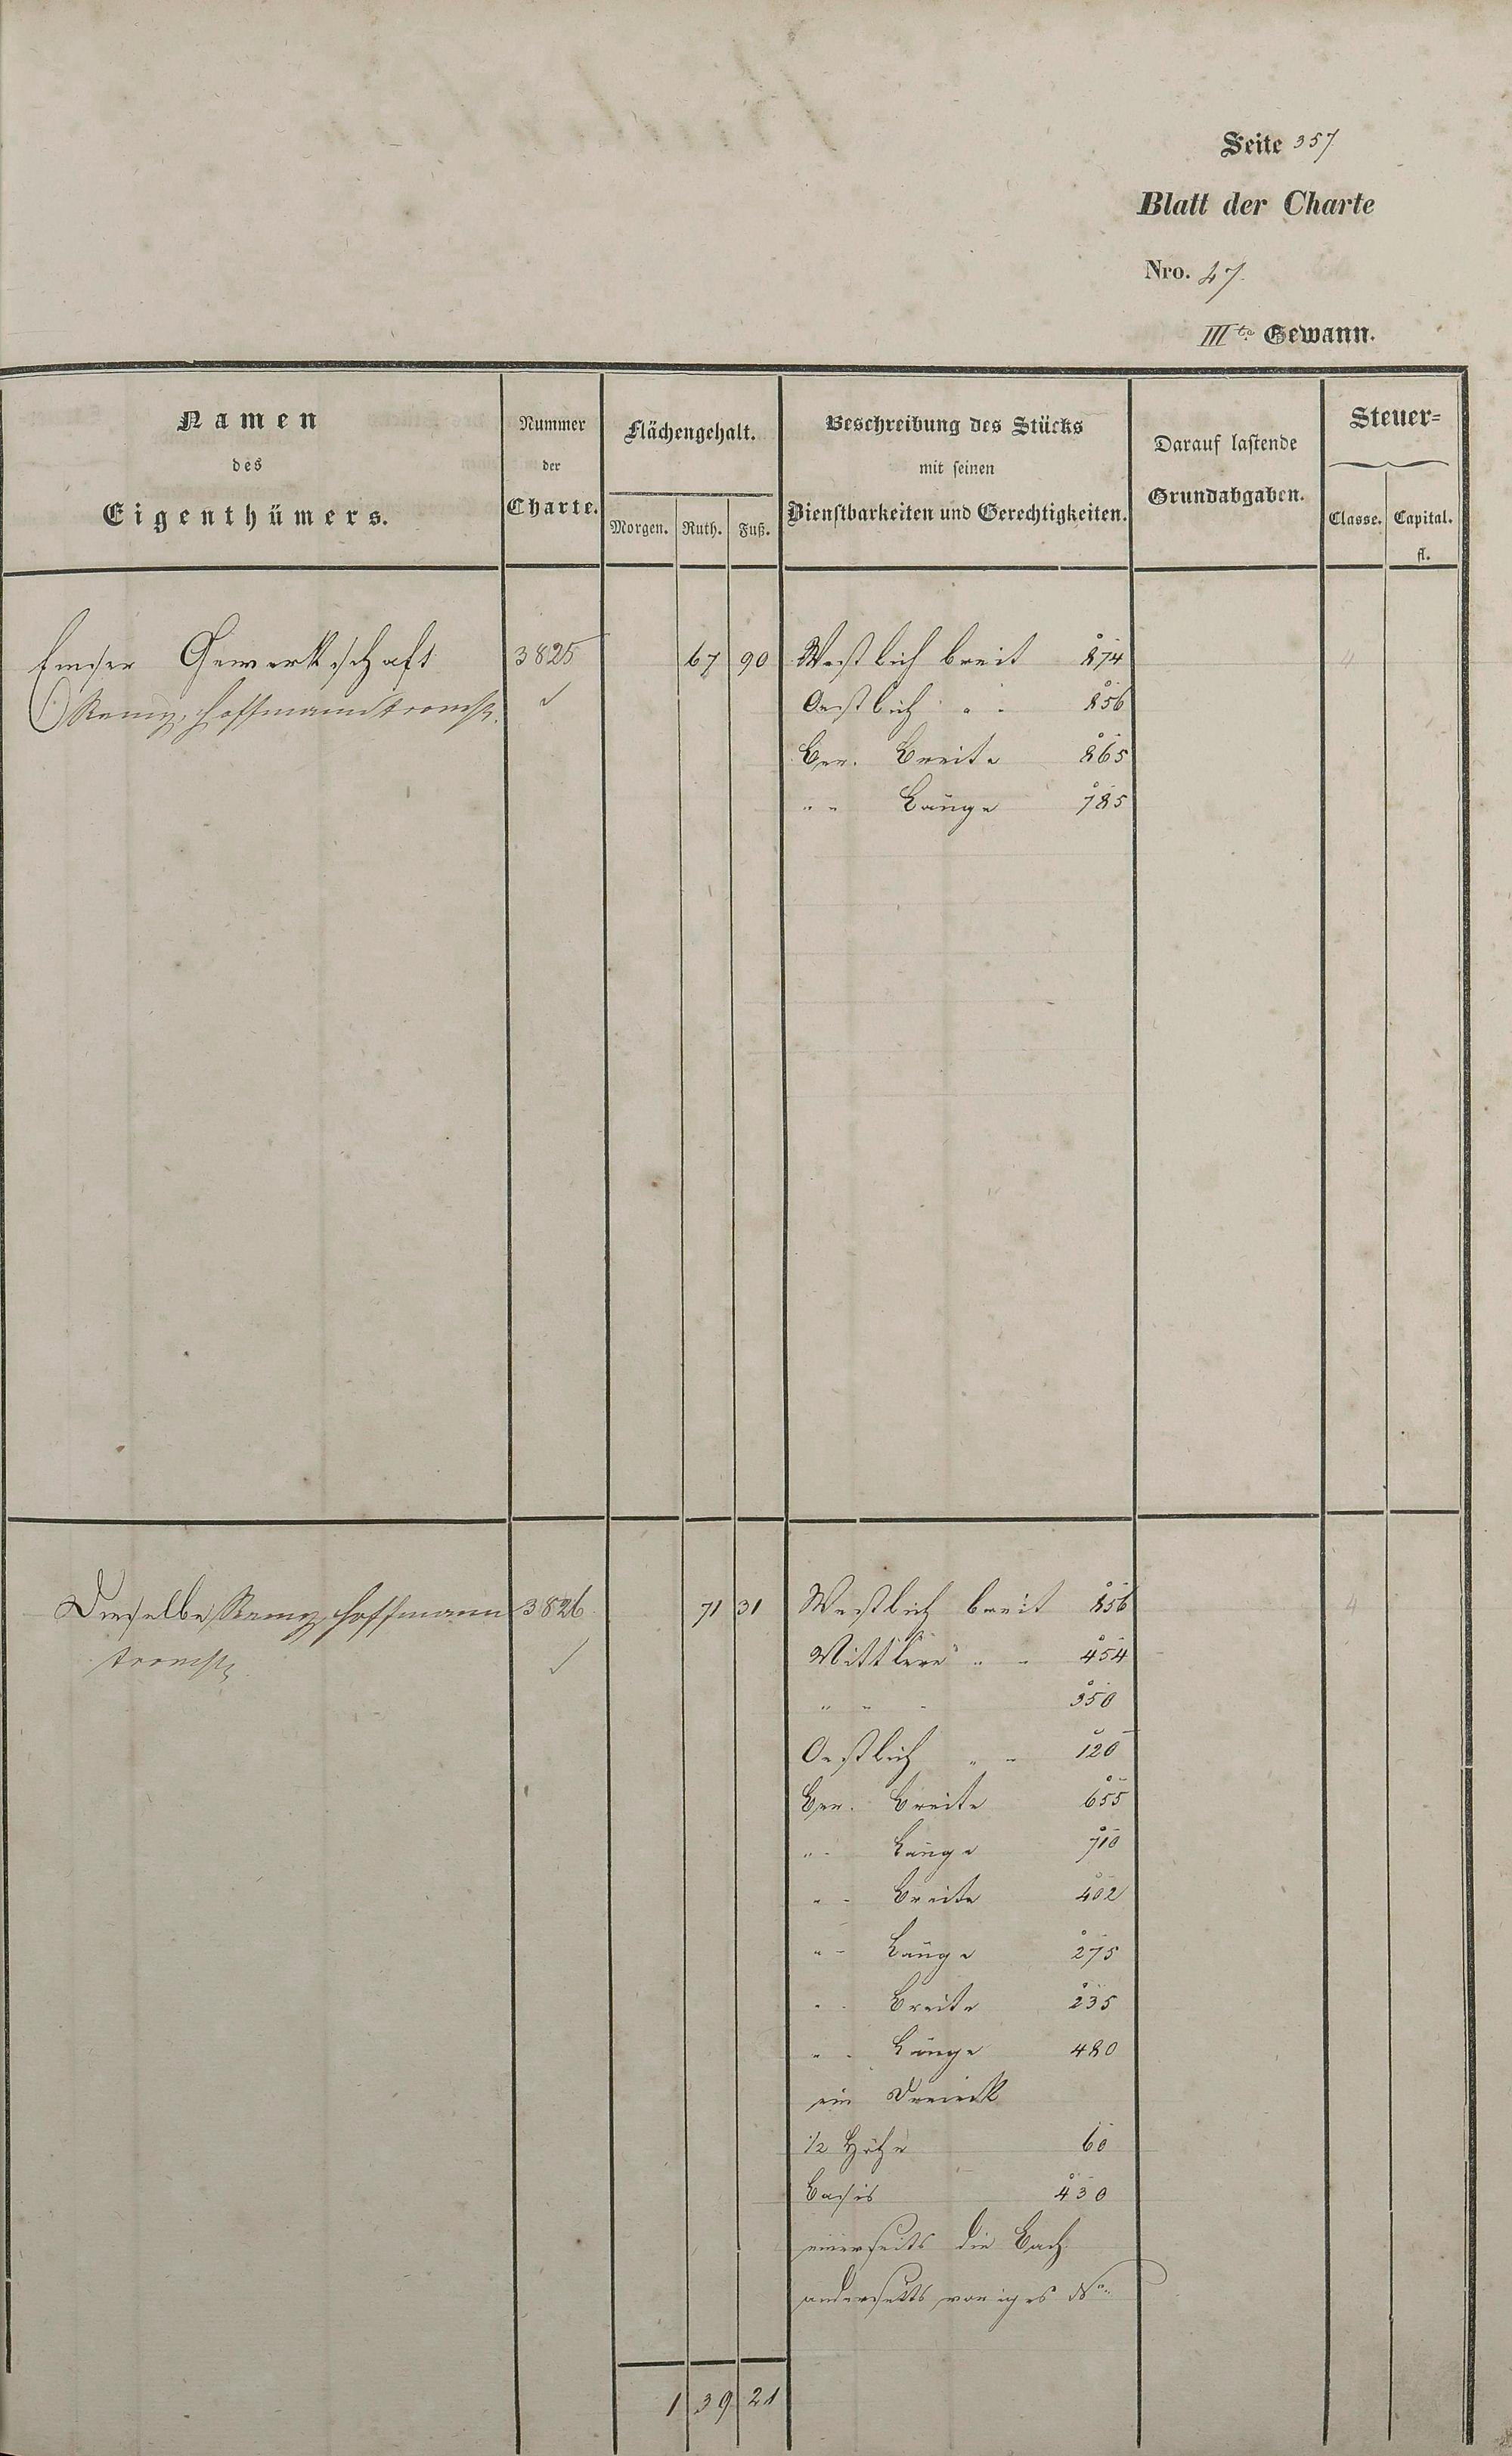 Seite 357
Blatt der Charte
Nro. 47.
IIIte Gewann.
Namen
des
Eigenthümers.
Nummer
der
Charte.
Flächengehalt.
Morgen. Ruth. Fuß.
Beschreibung des Stücks
mit seinen
Dienstbarkeiten und Gerechtigkeiten.
Darauf lastende
Grundabgaben.
Steuer=
Classe. Capital.
fl.
Emser Gewerkschaft 3825 67 90 Westlich breit 874 4
Remy, Hoffmann Oestlich " " 856
Ber. Breite 865
" " Länge 785
Dieselbe Remy Hoffmann 3826 71 31 Westlich breit 856 4
Mittlere " " 454
" " " 350
Oestlich " " 120
Ber. Breite 655
" " Länge 710
" " Breite 402
" " Länge 275
" " Breite 235
" " Länge 480
ein Dreieck
1/2 Höhe 60
Basis 430
einerseits die Bach
anderseits voriges No.
1 39 21